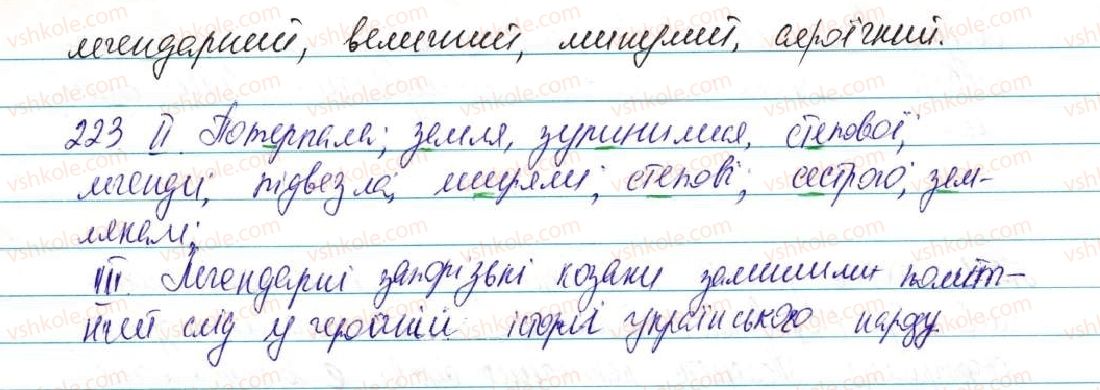 легендарний, великий, минулий, героїчний.
223 II. Потерпала; земля, зупинилися, степової;
легенди; підвезла, щирями; степові; сестрою; зем-
лякам;
III. Легендарні запорізькі козаки залишили поміт-
ний слід у героїчній історії українського народу.